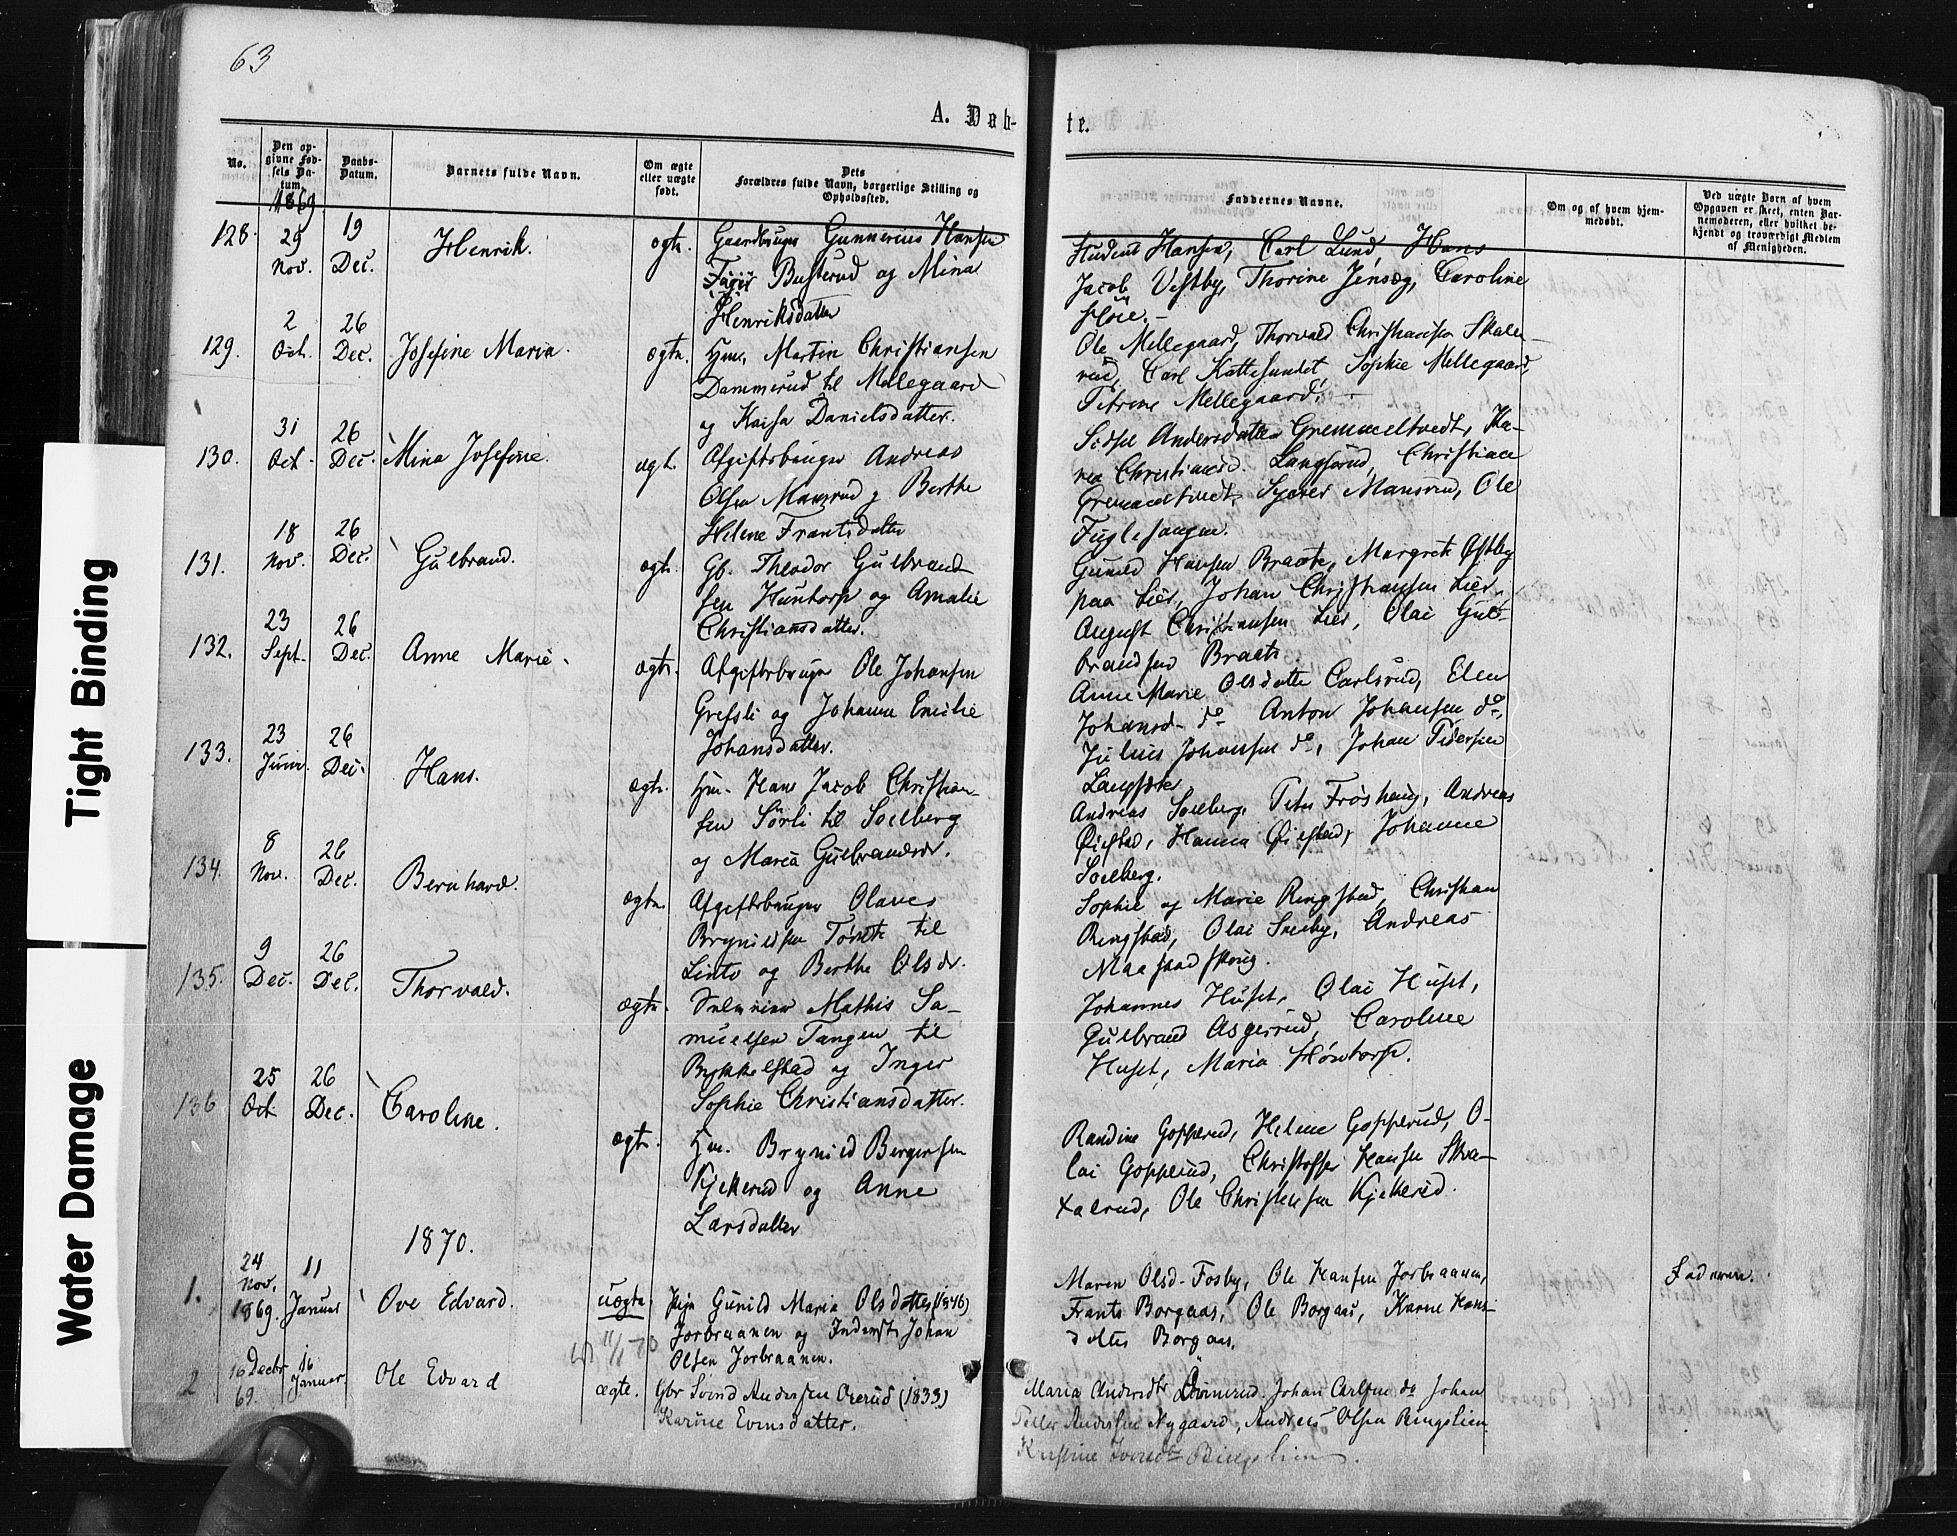 63
A. Døb-
te.
No.
Den op-
givne Fød-
sels Da-
tum.
Daabs-
Datum.
Barnets fulde Navn.
Om ægte
eller uægte
født.
Dets
Forældres fulde Navn, borgerlige Stilling og
Opholdssted.
Faddernes Navne.
Om og af hvem hjem-
medøbt.
Ved uægte Børn af hvem
Opgaven er skeet, enten Bar-
nemoderen, eller hvilket be-
kjendt og troværdigt Medlem
af Menigheden.
1869
128. 29 Nov. 19 Dec. Henrik. ægte.
Gaardbruger Gunnerius Hansen
Busterud og Mina
Henriksdatter
Student Hansen, Carl Lund, Hans
Jacob Vestby, Thorine Jensæg, Caroline
129. 2 Oct. 26 Dec. Josefine Maria. ægte.
Hmd. Martin Christiansen
Dammerud til Mellegaard
og Kaisa Danielsdatter.
Ole Mellegaard, Thorvald Christiansen Skale-
rud, Carl Kattesundet Sophie Mellegaard,
Petrine Mellegaard.
130. 31 Oct. 26 Dec. Mina Josefine. ægte.
Afgiftsbruger Andreas
Olsen Mansrud og Berthe
Helene Frantsdatter
Sidsel Andersdatter Gremmeltvedt, Ka-
ren Christiansd. Langsrud, Christian
Gremmeltvedt, Syver Mansrud, Ole
Fuglesangen.
131. 18 Nov. 26 Dec. Gulbrand. ægte.
Gb. Theodor Gulbrand-
sen Huntorp og Amalie
Christiansdatter.
Gunild Hansen Braate, Margrete Østby
paa Lier, Johan Christiansen Lier,
August Christiansen Lier, Olai Gul-
brandsen Braate.
132. 23 Sept. 26 Dec. Anne Marie. ægte.
Afgiftsbruger Ole Johansen
Grefsli og Johanne Emilie
Johansdatter.
Anne Marie Olsdatter Carlsrud, Elen
Johansd. do Anton Johansen do,
Julius Johansen do, Johan Pedersen
133. 23 Juni. 26 Dec. Hans. ægte.
Hm. Hans Jacob Christian-
sen Sørli til Soelberg
og Maria Gulbrandsdr.
Andreas Soelberg, Peter Frøshaug, Andreas
Øiestad, Hanna Øiestad, Johanne
Soelberg.
134. 8 Nov. 26 Dec. Bernhard. ægte.
Afgiftsbruger Olaves
Brynildsen Torete til
Linto og Berthe Olsdr.
Sophie og Marie Ringstad, Christian
Ringstad, Olai Sneby, Andreas
135. 9 Dec. 26 Dec. Thorvald. ægte.
Mathis Sa-
muelsen Tangen til
Bykkelstad og Inger
Sophie Christiansdatter.
Johannes Huset, Olai Huset,
Gulbrand Asgerrud, Caroline
Huset, Maria Høntorp.
136 25 Oct. 26 Dec. Caroline. ægte.
Hm. Brynild Bergersen
Kjekerud og Anne
Larsdatter
Randine Gopperud, Helene Gopperud, O-
lai Gopperud, Christoffer Hansen Ska-
talrud, Ole Christensen Kjekerud.
1870.
1. 24 Nov. 1869. 11 Januar Ove Edvard. uægte.
Pige Gunild Maria Olsdatter (1846)
Jorbraanen og Inderst Johan
Olsen Jorbraanen.
Maren Olsd. Fosby, Ole Hansen Jorbraanen,
Frants Borgaas, Ole Borgaas, Karne Hans-
datter Borgaas.
Faderen.
2 16 Decbr 69. 16 Januar Ole Edvard ægte.
Gbr Svend Andersen Ørerud (1833)
Karine Evensdatter.
Maria Andersdtr Johan Carlsen do Johan
Petter Andersen Nygaard, Andreas Olsen Ringslien
Kristine Iversdtr Ringslien.
Tight Binding
Water Damage